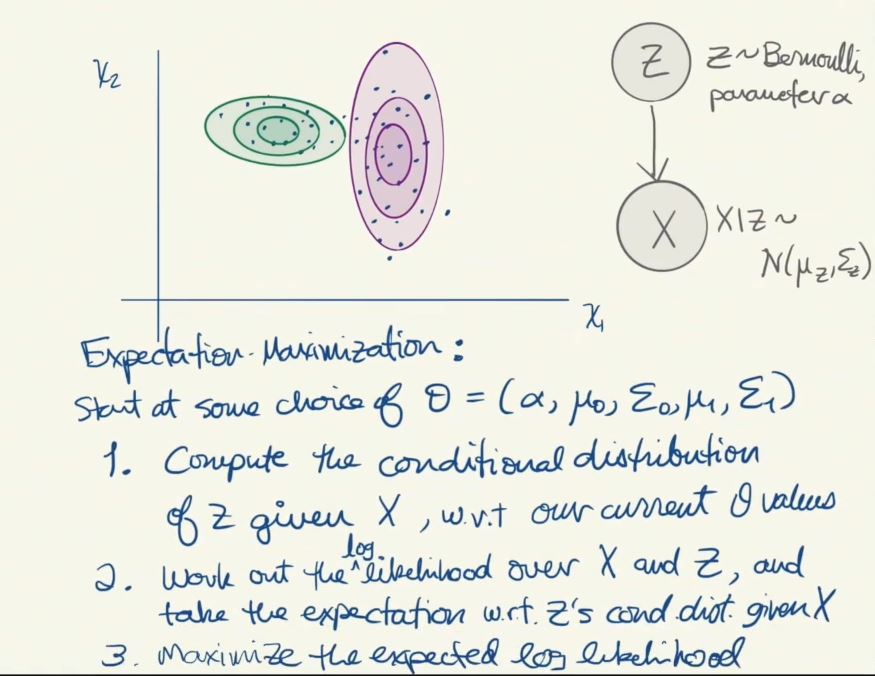 X₂
Z
Z ~ Bernoulli,
parameter α
X
X|Z ~
N(μ_Z, Σ_Z)
X₁
Expectation-Maximization:
Start at some choice of Θ = (α, μ₀, Σ₀, μ₁, Σ₁)
1. Compute the conditional distribution
of Z given X, w.r.t our current θ values
log
2. Work out the ^ likelihood over X and Z, and
take the expectation w.r.t. Z's cond. dist. given X
3. Maximize the expected log likelihood